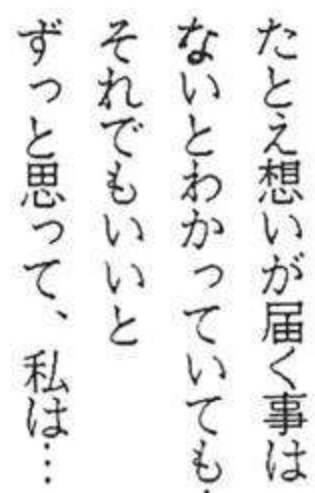 たとえ想いが届く事は
ないとわかっていても
それでもいいと
ずっと思って、私は…